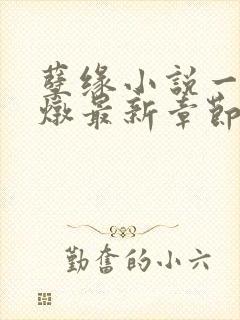 孽缘小説一
燉最新章節
勤奮的小六